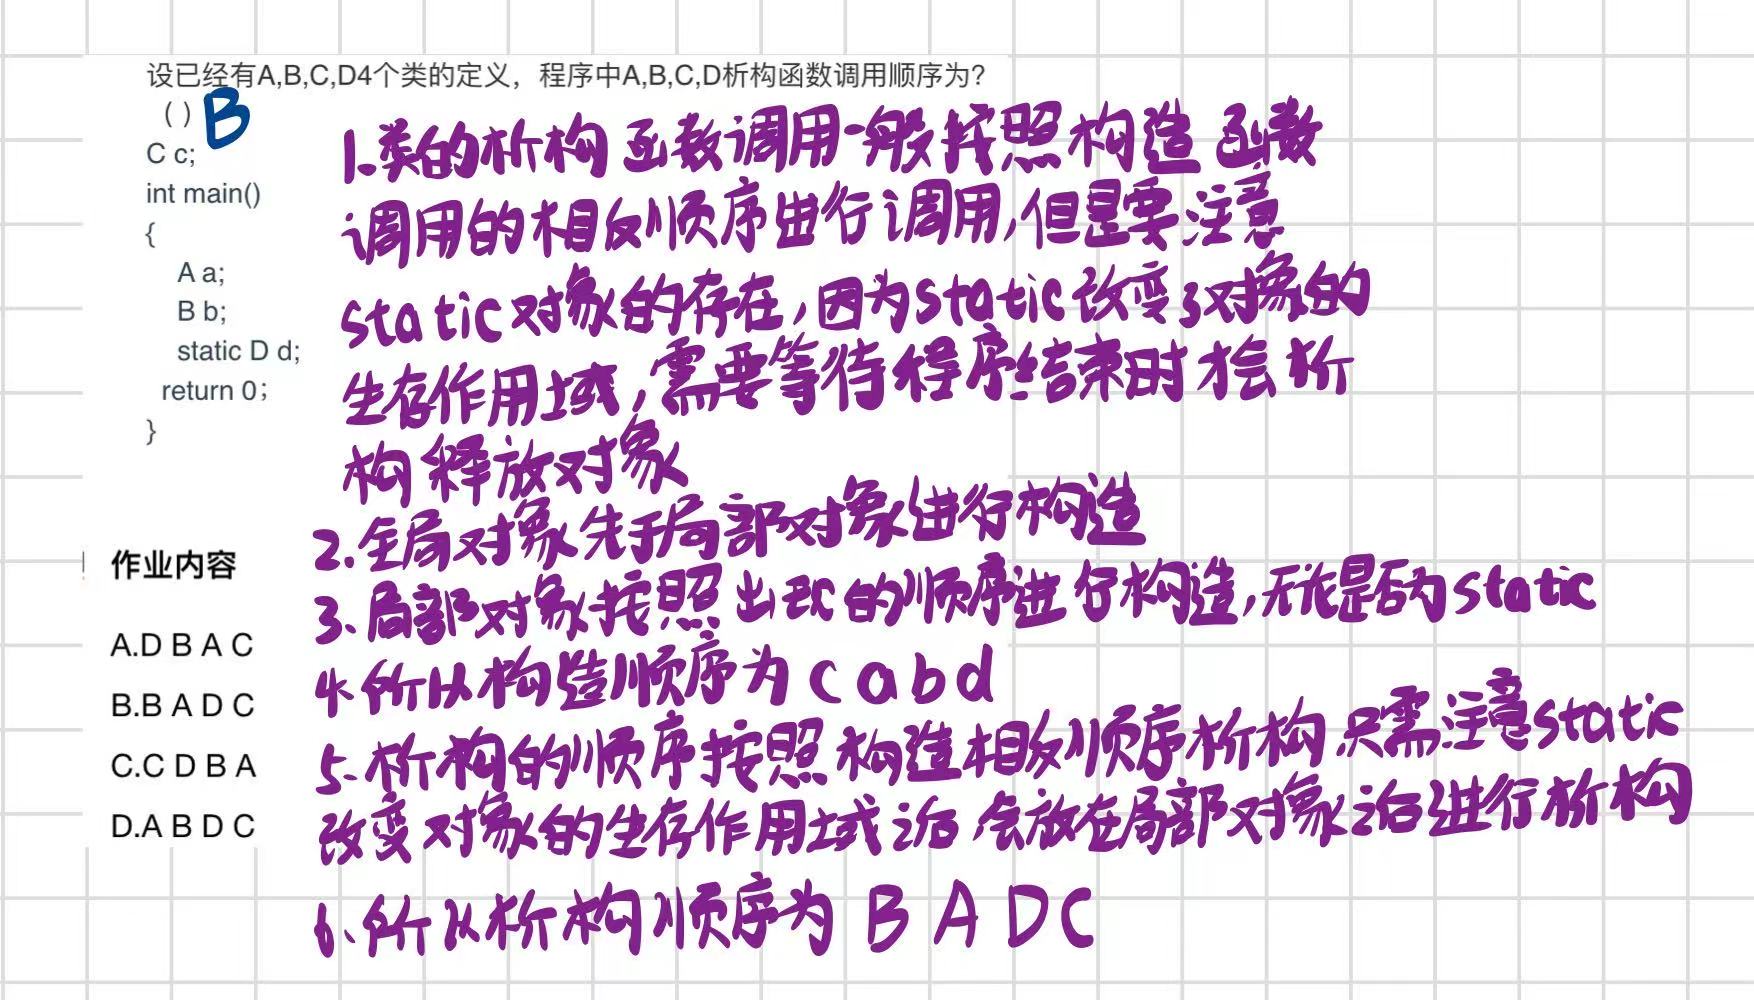 设已经有A,B,C,D4个类的定义，程序中A,B,C,D析构函数调用顺序为?
( ) B
C c;
int main()
{
A a;
B b;
static D d;
return 0；
}
1.类的析构函数调用一般按照构造函数
调用的相反顺序进行调用,但是要注意
static对象的存在,因为static改变了对象的
生存作用域,需要等待程序结束时才会析
构释放对象
2.全局对象先于局部对象进行构造
3.局部对象按照出现的顺序进行构造,无论是否为static
4.所以构造顺序为 c a b d
5.析构的顺序按照构造相反顺序析构,只需注意static
改变对象的生存作用域之后,会放在局部对象之后进行析构
6.所以析构顺序为 B A D C
作业内容
A.D B A C
B.B A D C
C.C D B A
D.A B D C